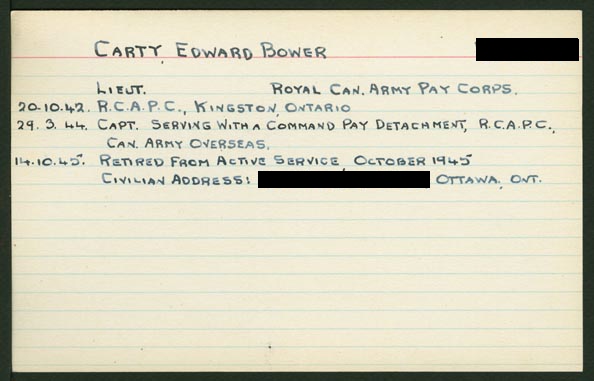 CARTY, EDWARD BOWER
LIEUT. ROYAL CAN. ARMY PAY CORPS.
20.10.42. R.C.A.P.C., KINGSTON, ONTARIO
29.3.44. CAPT. SERVING WITH A COMMAND PAY DETACHMENT, R.C.A.P.C.,
CAN. ARMY OVERSEAS.
14.10.45. RETIRED FROM ACTIVE SERVICE, OCTOBER 1945
CIVILIAN ADDRESS: OTTAWA, ONT.